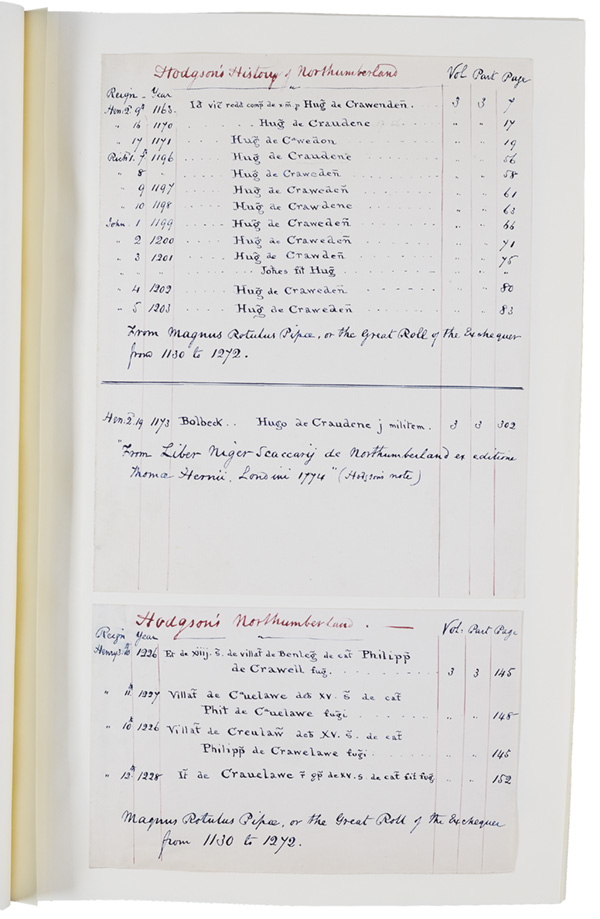 Hodgson's History of Northumberland Vol Part Page
Reign - Year
Hen: 2. 9th 1163. Id vic redd comp de x m p Hug̃ de Crawendeñ. 3 3 7
" 16 1170 Hug̃ de Craudene " " 17
" 17 1171 Hug̃ de Cawedon " " 19
Rich: 1. 7 1196 Hug̃ de Craudene " " 56
" 8 " Hug̃ de Crawedeñ " " 58
" 9 1197 Hug̃ de Crawedeñ " " 61
" 10 1198 Hug̃ de Crawdene " " 63
John. 1 1199 Hug̃ de Crawedeñ " " 66
" 2 1200 Hug̃ de Crawedeñ " " 71
" 3 1201 Hug̃ de Crawdeñ " " 75
Johes fil Hug̃ " " "
" 4 1202 Hug̃ de Crawedeñ " " 80
" 5 1203 Hug̃ de Crawedeñ " " 83
From Magnus Rotulus Pipæ, or the Great Roll of the Exchequer
from 1130 to 1272.
Hen: 2d 19 1173 Bolbeck . . Hugo de Craudene j militem. 3 3 302
"From Liber Niger Scaccarij de Northumberland ex editione
Thomæ Hernii, Londini 1774" (Hodgsons note)
Hodgson's Northumberland. Vol: Part Page
Reign Year
Henry 3 10 1226 Et de xiiij. s. de villat de Benleg̃ de cat Philipp̃
de Crawell fug̃. 3 3 145
" 11th 1227 Villat de Cauelawe deb XV. s. de cat
Phil de Cauelawe fugi " " 148
" 10th 1226 Villat de Creulaw̃ deb XV. s. de cat
Philipp̃ de Crawelawe fugi " " 145
" 12th 1228 de Crauelawe de XV. s. de cat fug̃ " " 152
Magnus Rotulus Pipæ, or the Great Roll of the Exchequer
from 1130 to 1272.